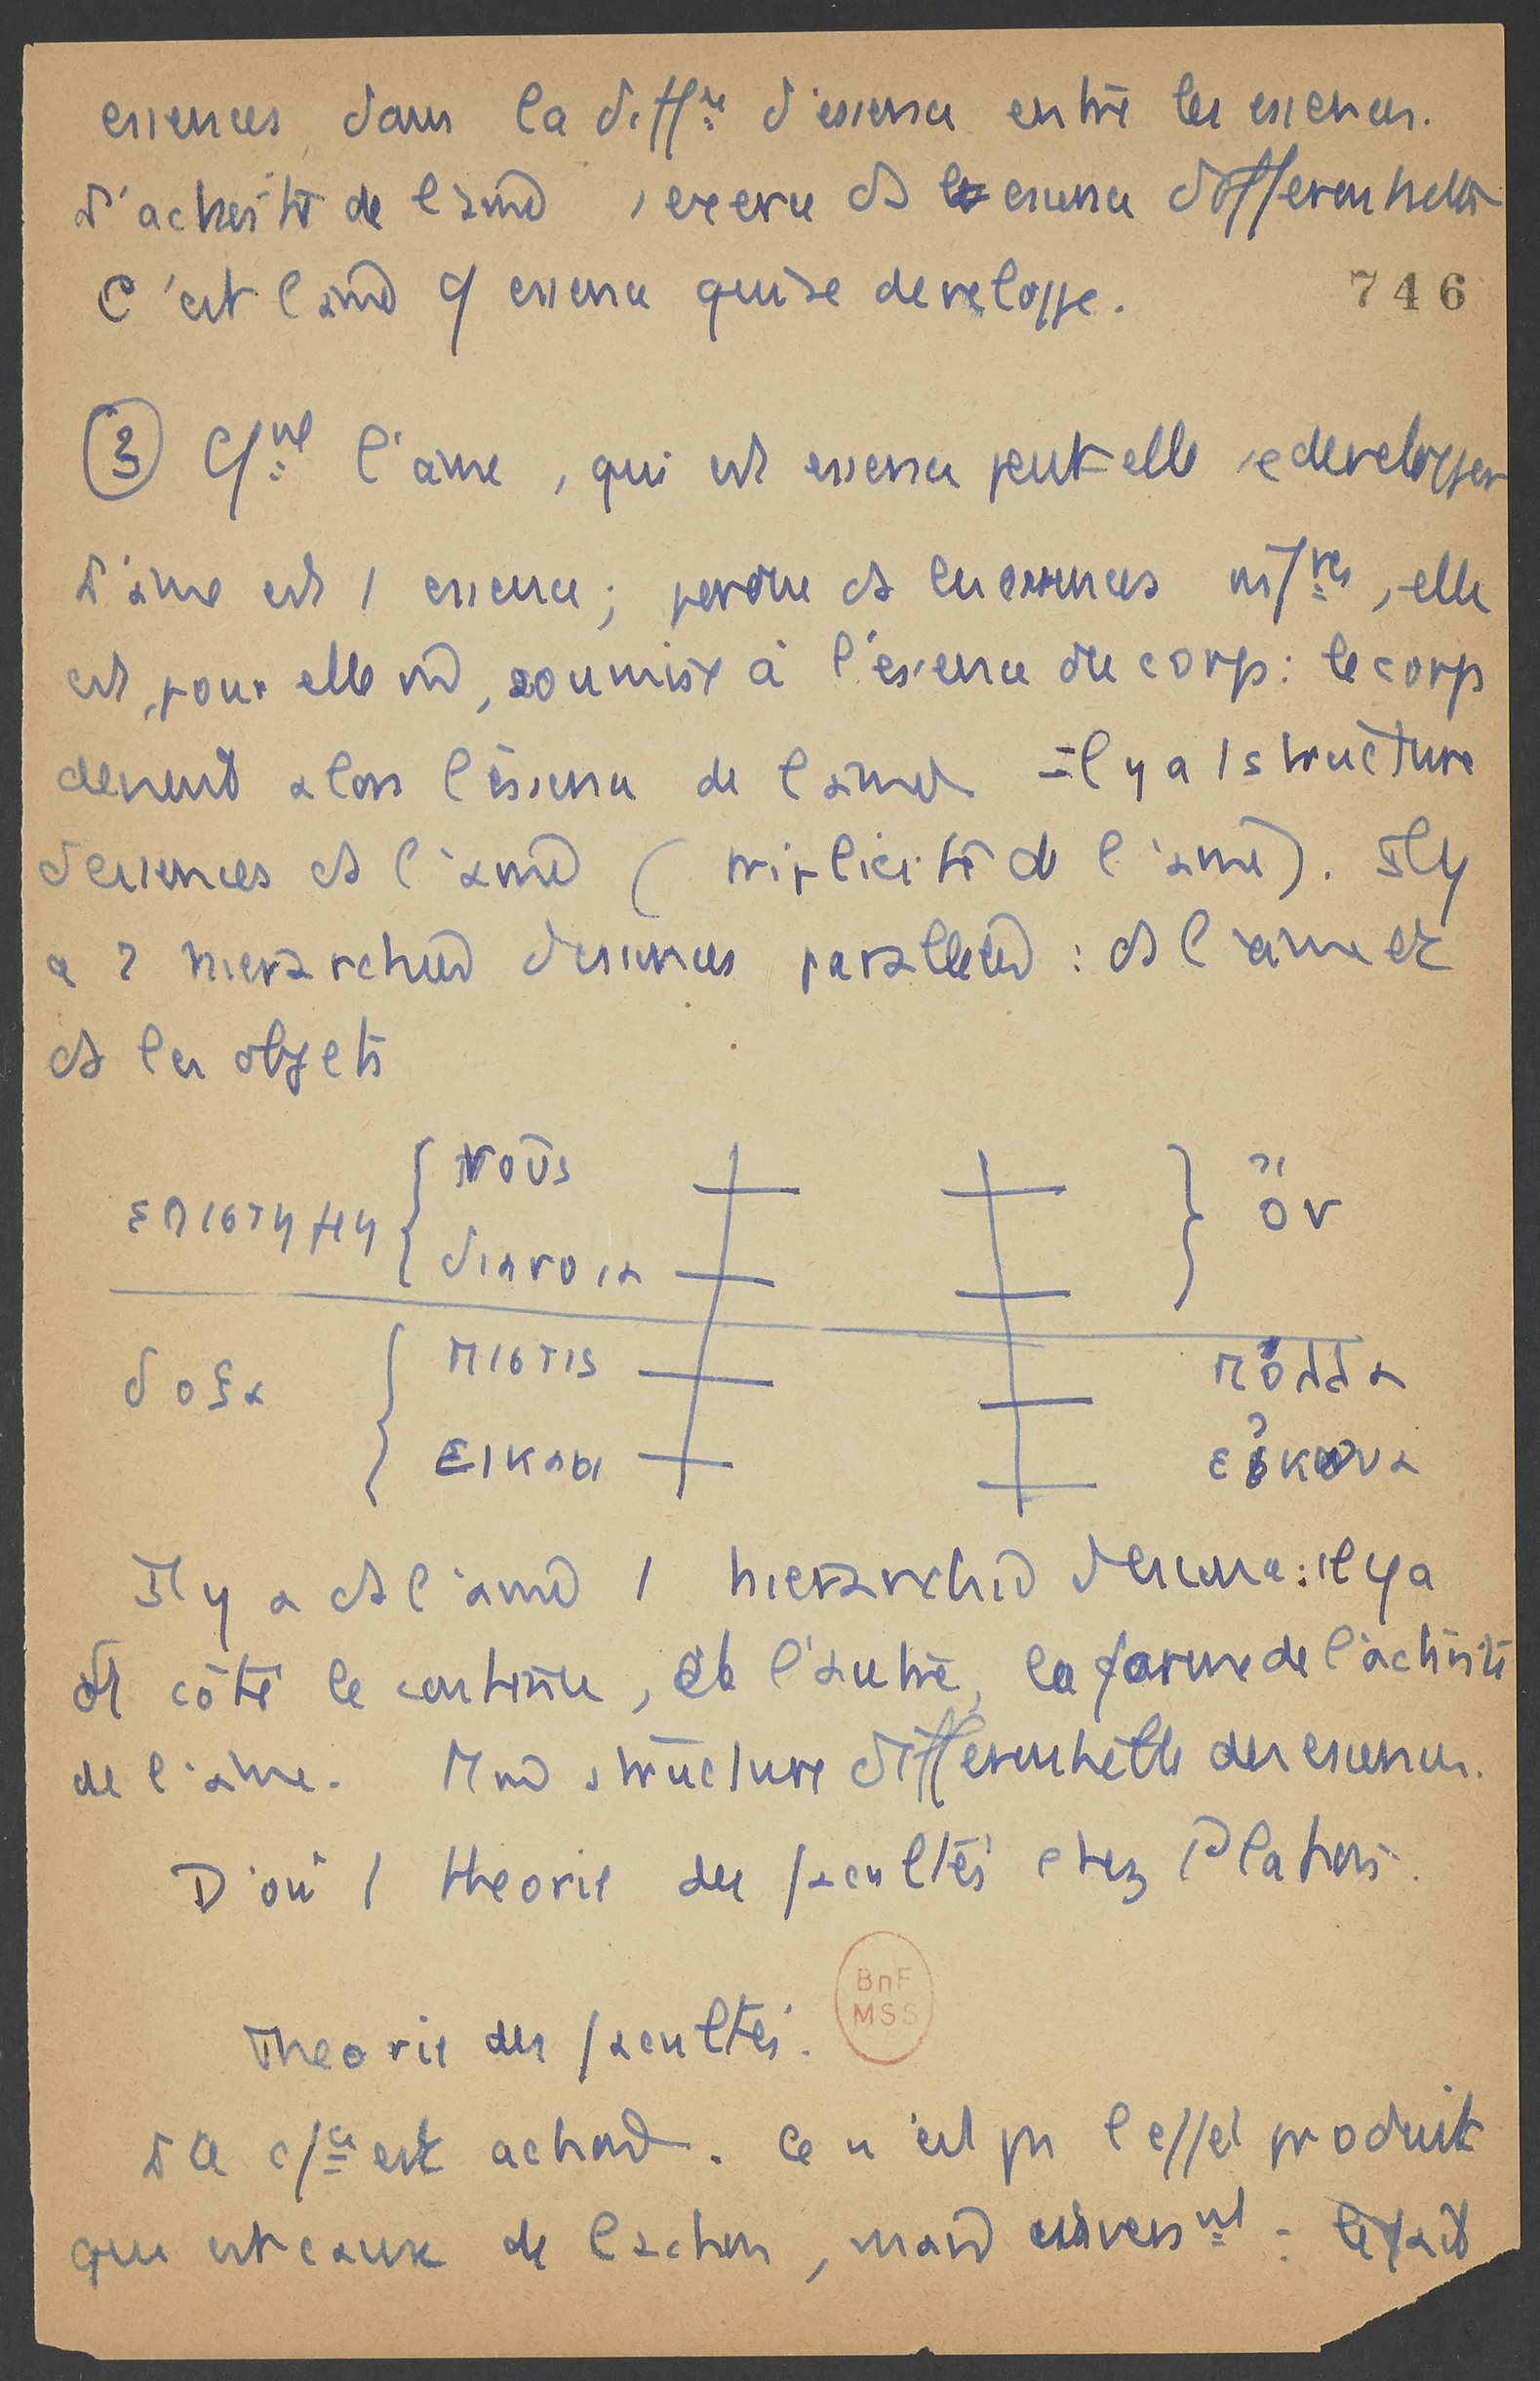 essences, dans la diffce d'essence entre les essences.
L'activité de l'âme s'exerce ds essence differentielle
C'est l'âme q essence qui se developpe.
746
③ Cmt l'âme, qui est essence peut-elle se developper
L'âme est 1 essence; perdue ds les essences infres, elle
est, pour elle m, soumise à l'essence du corps : le corps
devient alors l'essence de l'âme. Il y a 1 structure
d'essences ds l'âme (triplicité de l'âme). Il y
a 2 hierarchies d'essences paralleles : ds l'âme et
ds les objets
επιστημη { νοῦς } ὄν
διανοια
δοξα { πιστις πόλλα
εικασι εἰκονα
Il y a ds l'âme 1 hierarchie d'essence : il y a
d'1 côté le contenu, de l'autre, la forme de l'activité
de l'âme. structure differentielle des essences.
D'où 1 theorie des facultés chez Platon.
Theorie des facultés.
BnF
MSS
La est action. Ce n'est pas l'effet produit
qui est cause de l'action, mais inversnt : le fait